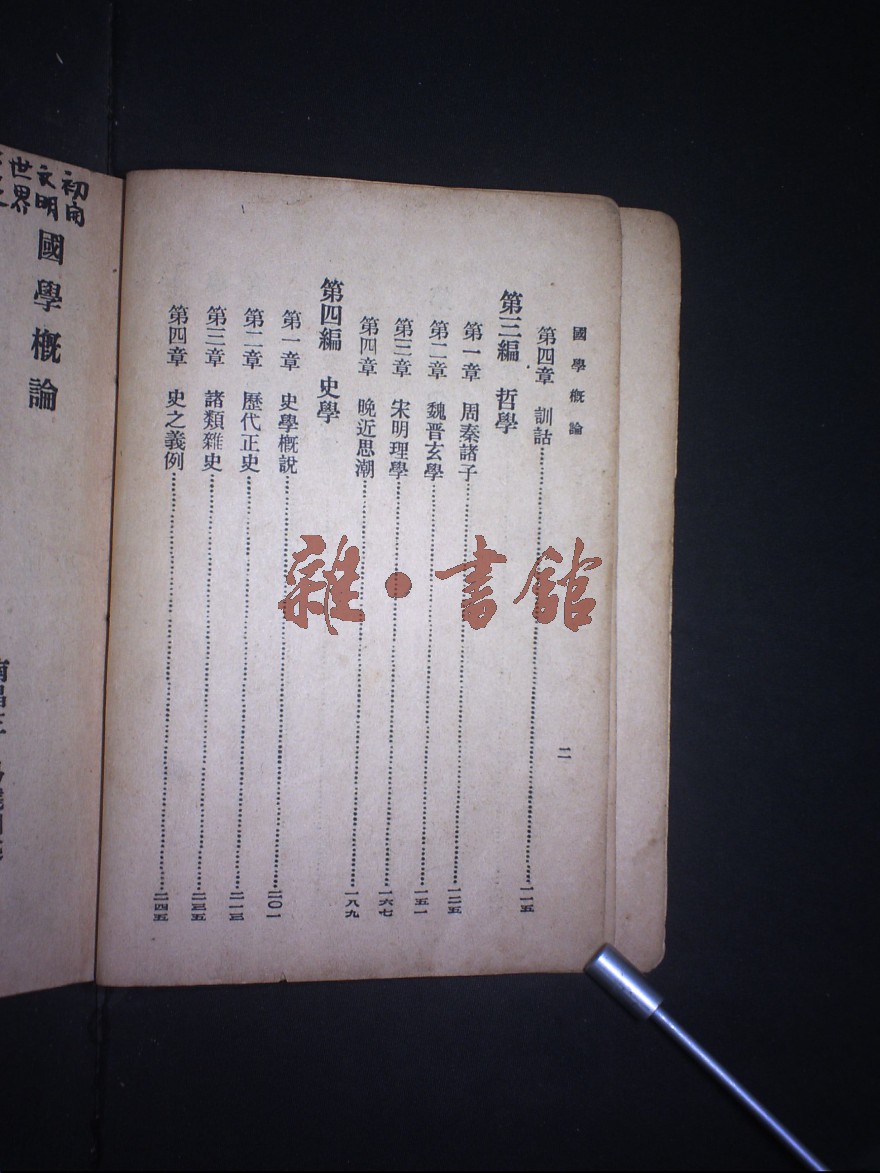 國學概論
第四章 訓詁……一一五
第三編 哲學
第一章 周秦諸子……一二五
第二章 魏晉玄學……一五一
第三章 宋明理學……一六七
第四章 晚近思潮……一八九
第四編 史學
第一章 史學概說……二〇一
第二章 歷代正史……二一三
第三章 諸類雜史……二三五
第四章 史之義例……二四五
二
雜·書館
初
文明
世界
國學概論